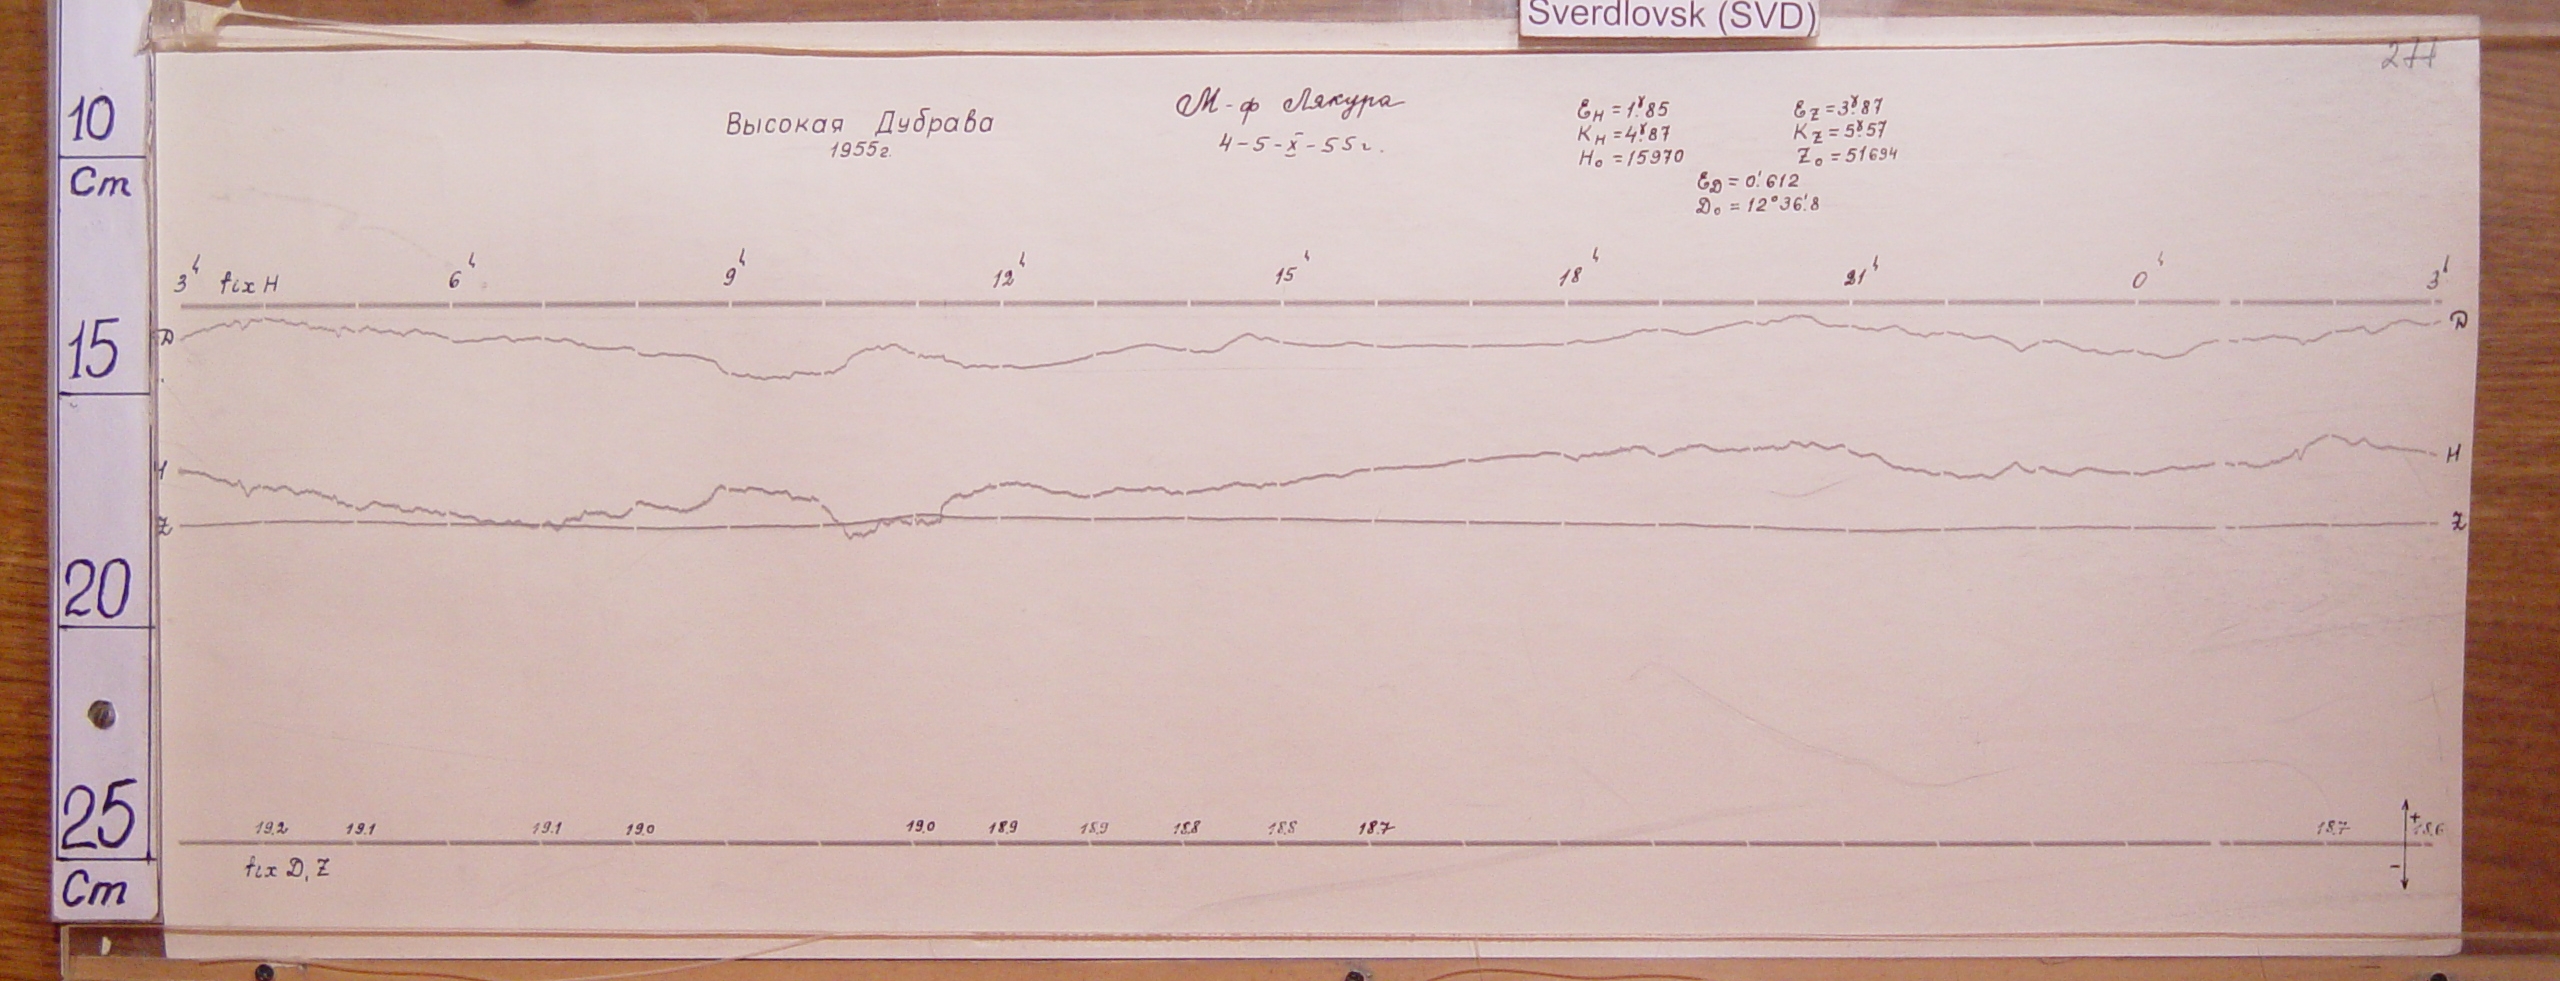 Sverdlovsk (SVD)
277
10
Cm
15
20
25
Cm
Высокая Дубрава
1955г.
М-ф Лякура
4-5-X-55г.
ε_H = 1ˠ.85
K_H = 4ˠ.87
H₀ = 15970
ε_Z = 3ˠ.87
K_Z = 5ˠ.57
Z₀ = 51694
ε_D = 0'.612
D₀ = 12°36'.8
3ʰ fix H 6ʰ 9ʰ 12ʰ 15ʰ 18ʰ 21ʰ 0ʰ 3ʰ
D D
H H
Z Z
19.2 19.1 19.1 19.0 19.0 18.9 18.9 18.8 18.8 18.7 18.7 18.6
+
-
fix D, Z